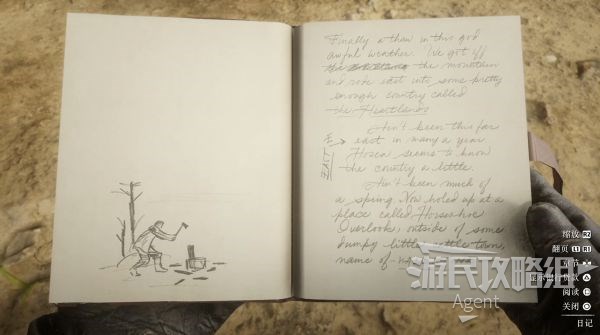 Finally a thaw in this god
awful weather. We got off
the mountain
and rode east into some pretty
enough country called
the Heartlands
Ain't been this far
east in many a year
Hosea seems to know
the country a little.
EAST
Ain't been much of
a spring. Now holed up at a
place called Horseshoe
Overlook, outside of some
dumpy little cattle town,
name of
游民攻略组
Agent
缩放 R2
翻页 L1 R1
阅读
关闭
日记